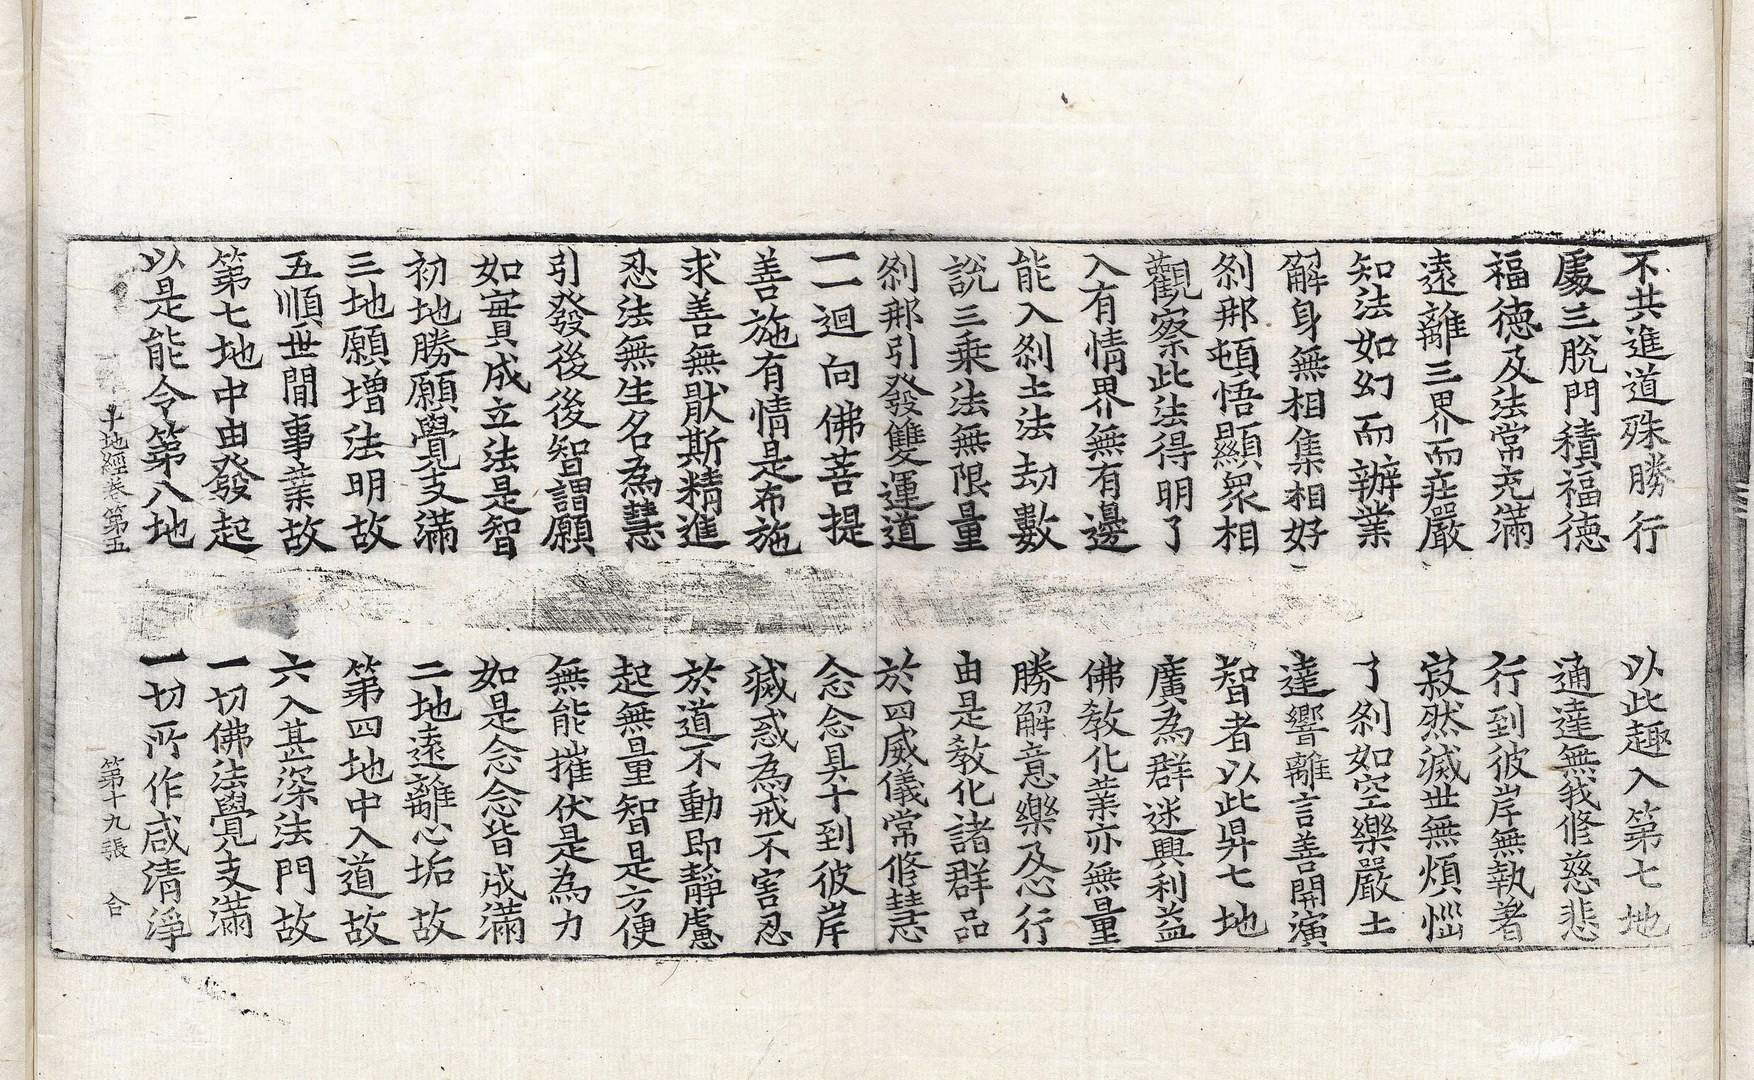 不共進道殊勝行　以此趣入第七地
處三脫門積福德　通達無我修慈悲
福德及法常充滿　行到彼岸無執著
遠離三界而莊嚴　寂然滅世無煩惱
知法如幻而辦業　了剎如空樂嚴土
解身無相集相好　達響離言善開演
剎那頓悟顯眾相　智者以此昇七地
觀察此法得明了　廣為群迷興利益
入有情界無有邊　佛教化業亦無量
能入剎土法劫數　勝解意樂及心行
說三乘法無限量　由是教化諸群品
剎那引發雙運道　於四威儀常修慧
一一迴向佛菩提　念念具十到彼岸
善施有情是布施　滅惑為戒不害忍
求善無猒斯精進　於道不動即靜慮
忍法無生名為慧　起無量智是方便
引發後後智謂願　無能摧伏是為力
如實成立法是智　如是念念皆成滿
初地勝願覺支滿　二地遠離心垢故
三地願增法明故　第四地中入道故
五順世間事業故　六入甚深法門故
第七地中由發起　一切佛法覺支滿
以是能令第八地　一切所作咸清淨
十地經卷第五　第十九張　合